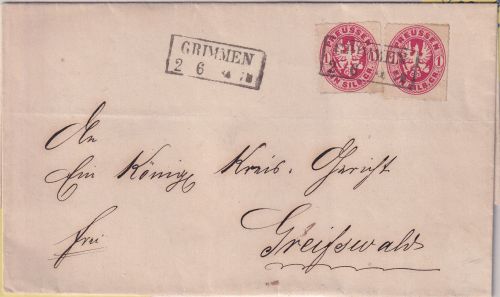 GRIMMEN
2 6
PREUSSEN
EIN SILB.GR.
GRIMMEN
2 6
PREUSSEN
1
EIN SILB.GR.
An
Ein Königl Kreis-Gericht
frei
Greifswald